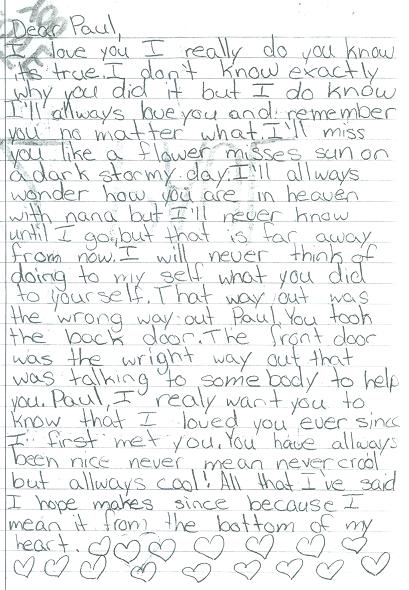 Dear Paul,
I love you I really do you know
it's true. I don't know exactly
why you did it but I do know
I'll allways love you and remember
you no matter what. I'll miss
you like a flower misses sun on
a dark stormy day. I'll allways
wonder how you are in heaven
with nana but I'll never know
until I go, but that is far away
from now. I will never think of
doing to my self what you did
to yourself. That way out was
the wrong way out Paul. You took
the back door. The front door
was the wright way out that
was talking to somebody to help
you. Paul, I realy want you to
know that I loved you ever since
I first met you. You have allways
been nice never mean never crool
but allways cool! All that I've said
I hope makes since because I
mean it from the bottom of my
heart.